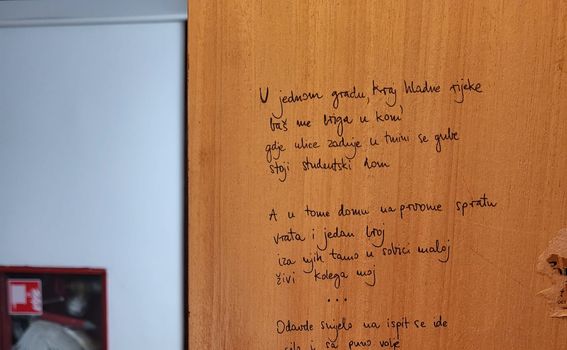 U jednom gradu, kraj hladne rijeke
baš me briga u kom'
gdje ulice zadnje u tmini se gube
stoji studentski dom
A u tome domu na prvome spratu
vrata i jedan broj
iza njih tamo u sobici maloj
živi kolega moj
...
Odavde smjelo na ispit se ide
i sa puno volje